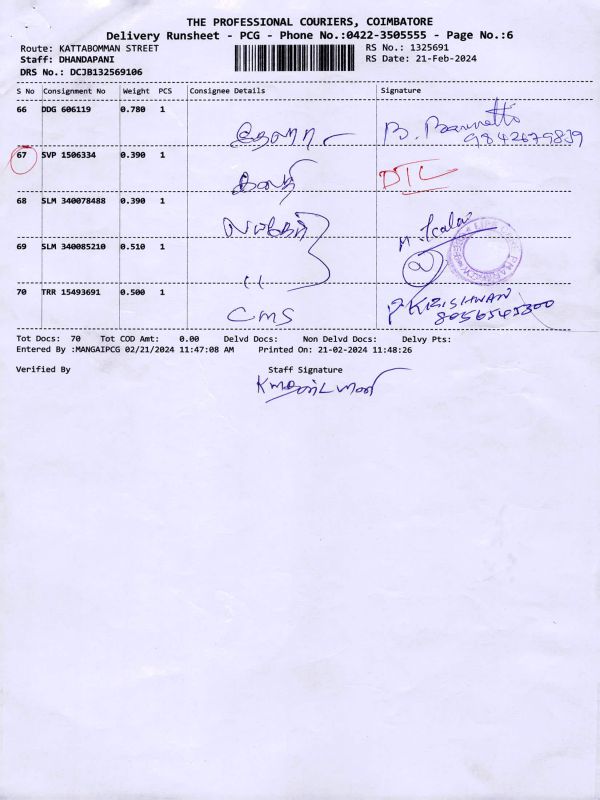 THE PROFESSIONAL COURIERS, COIMBATORE
Delivery Runsheet - PCG - Phone No.:0422-3505555 - Page No.:6
Route: KATTABOMMAN STREET RS No.: 1325691
Staff: DHANDAPANI RS Date: 21-Feb-2024
DRS No.: DCJB132569106
S No Consignment No Weight PCS Consignee Details Signature
66 DDG 606119 0.780 1
9842679839
67 SVP 1506334 0.390 1 DTC
68 SLM 340078488 0.390 1
69 SLM 340085210 0.510 1 "
70 TRR 15493691 0.500 1 CMS
8056545300
Tot Docs: 70 Tot COD Amt: 0.00 Delvd Docs: Non Delvd Docs: Delvy Pts:
Entered By :MANGAIPCG 02/21/2024 11:47:08 AM Printed On: 21-02-2024 11:48:26
Verified By Staff Signature